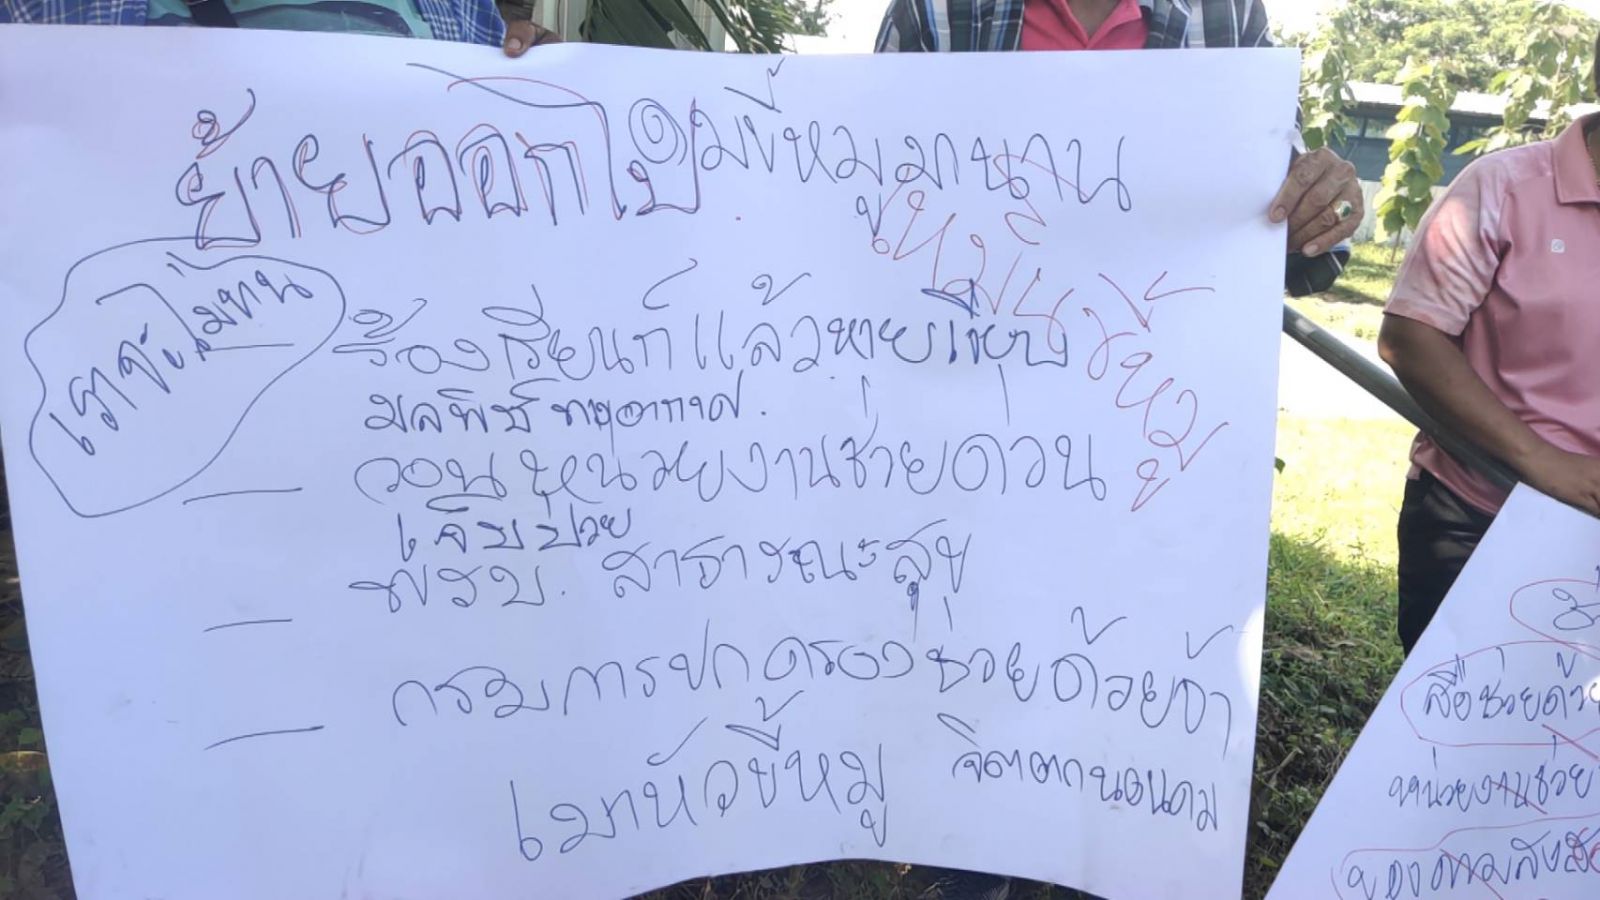 ย้ายออกไป ดมขี้หมูมานาน
เหม็นขี้หมู
เราจะไม่ทน
ร้องเรียนก็แล้วหายเงียบ
มลพิษทางอากาศ.
วอนหน่วยงานช่วยด่วน
เจ็บป่วย
พรบ. สาธารณะสุข
กรมการปกครองช่วยด้วยจ้า
เมาหัวขี้หมู จิตตกนอนดม
สื่อช่วยด้วย
หน่วยงานช่วย